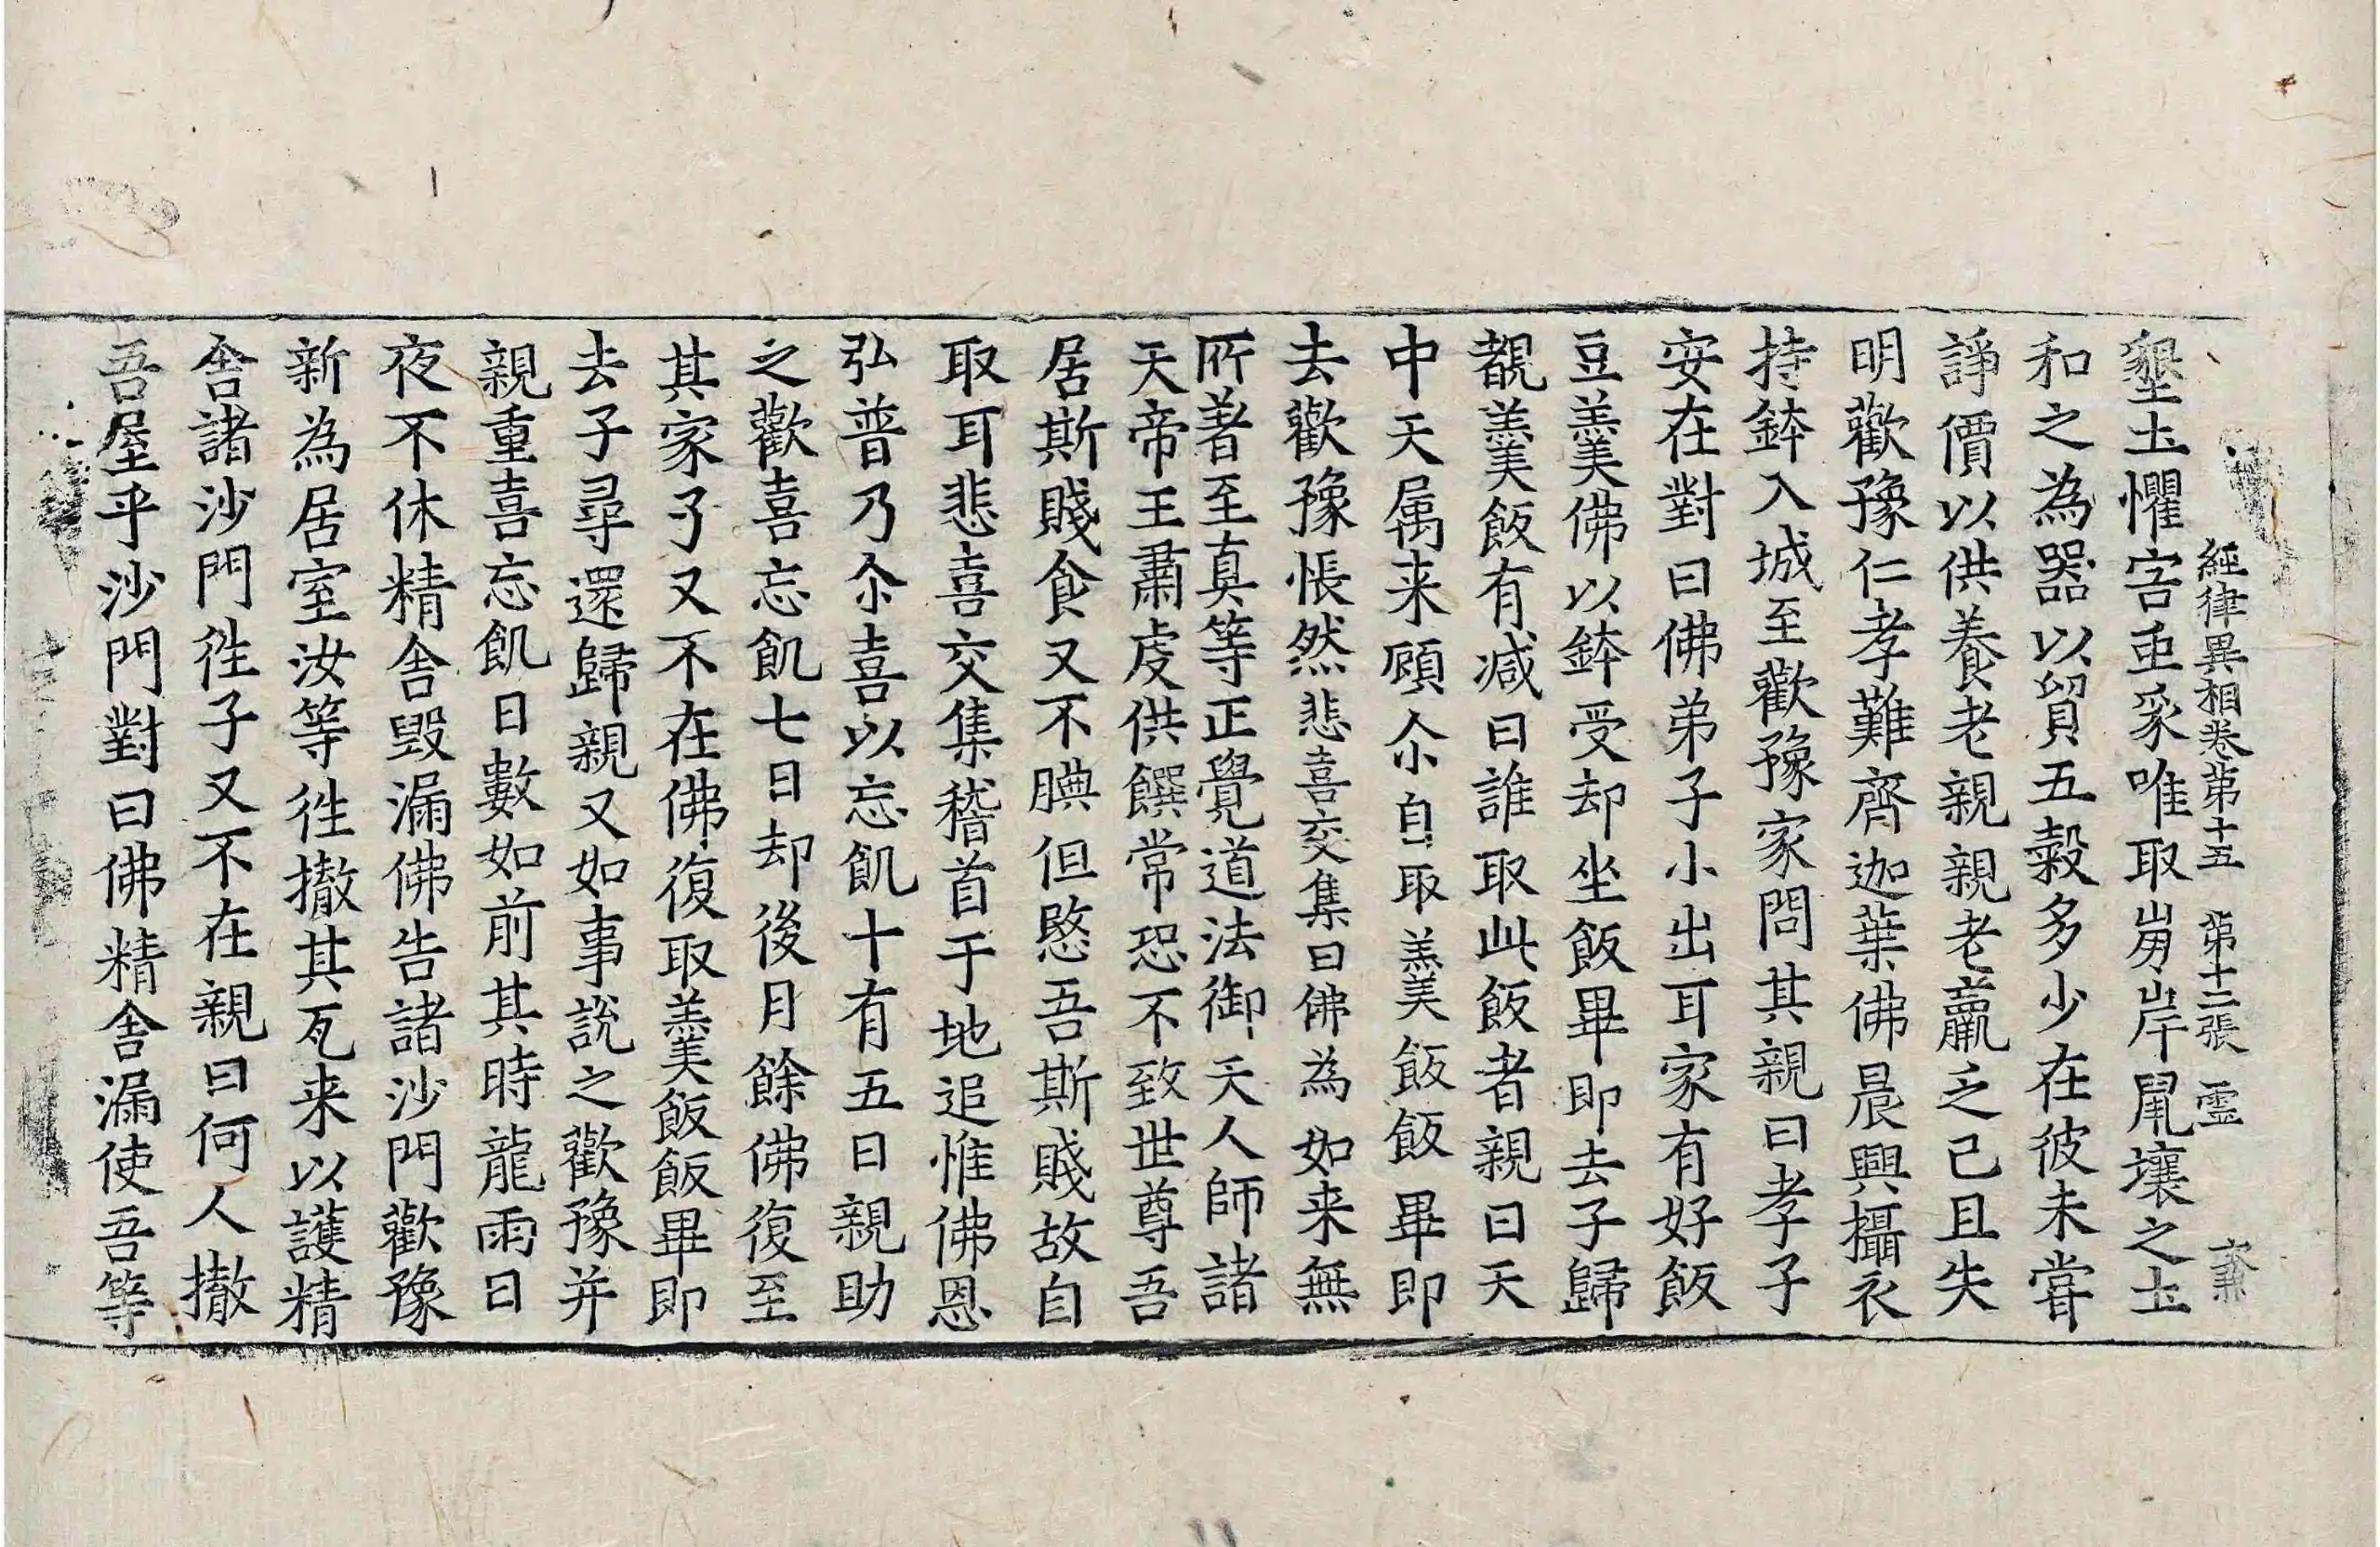 經律異相卷第十五 第十二張 靈
墾土懼害䖝豸唯取崩岸鼠壤之土
和之為器以貿五榖多少在彼未甞
諍價以供養老親親老羸乏已且失
明歡豫仁孝難齊迦葉佛晨興攝衣
持鉢入城至歡豫家問其親曰孝子
安在對曰佛弟子小出耳家有好飯
豆羹佛以鉢受却坐飯畢即去子歸
覩羹飯有减曰誰取此飯者親曰天
中天属来顧尒自取羹飯飯畢即
去歡豫悵然悲喜交集曰佛為如来無
所著至真等正覺道法御天人師諸
天帝王肅虔供饌常恐不致世尊吾
居斯賤食又不腆但愍吾斯賤故自
取耳悲喜交集稽首于地追惟佛恩
弘普乃尒喜以忘飢十有五日親助
之歡喜忘飢七日却後月餘佛復至
其家子又不在佛復取羹飯飯畢即
去子尋還歸親又如事說之歡豫并
親重喜忘飢日數如前其時龍雨日
夜不休精舎毀漏佛告諸沙門歡豫
新為居室汝等徃撤其瓦来以護精
舎諸沙門徃子又不在親曰何人撤
吾屋乎沙門對曰佛精舎漏使吾等